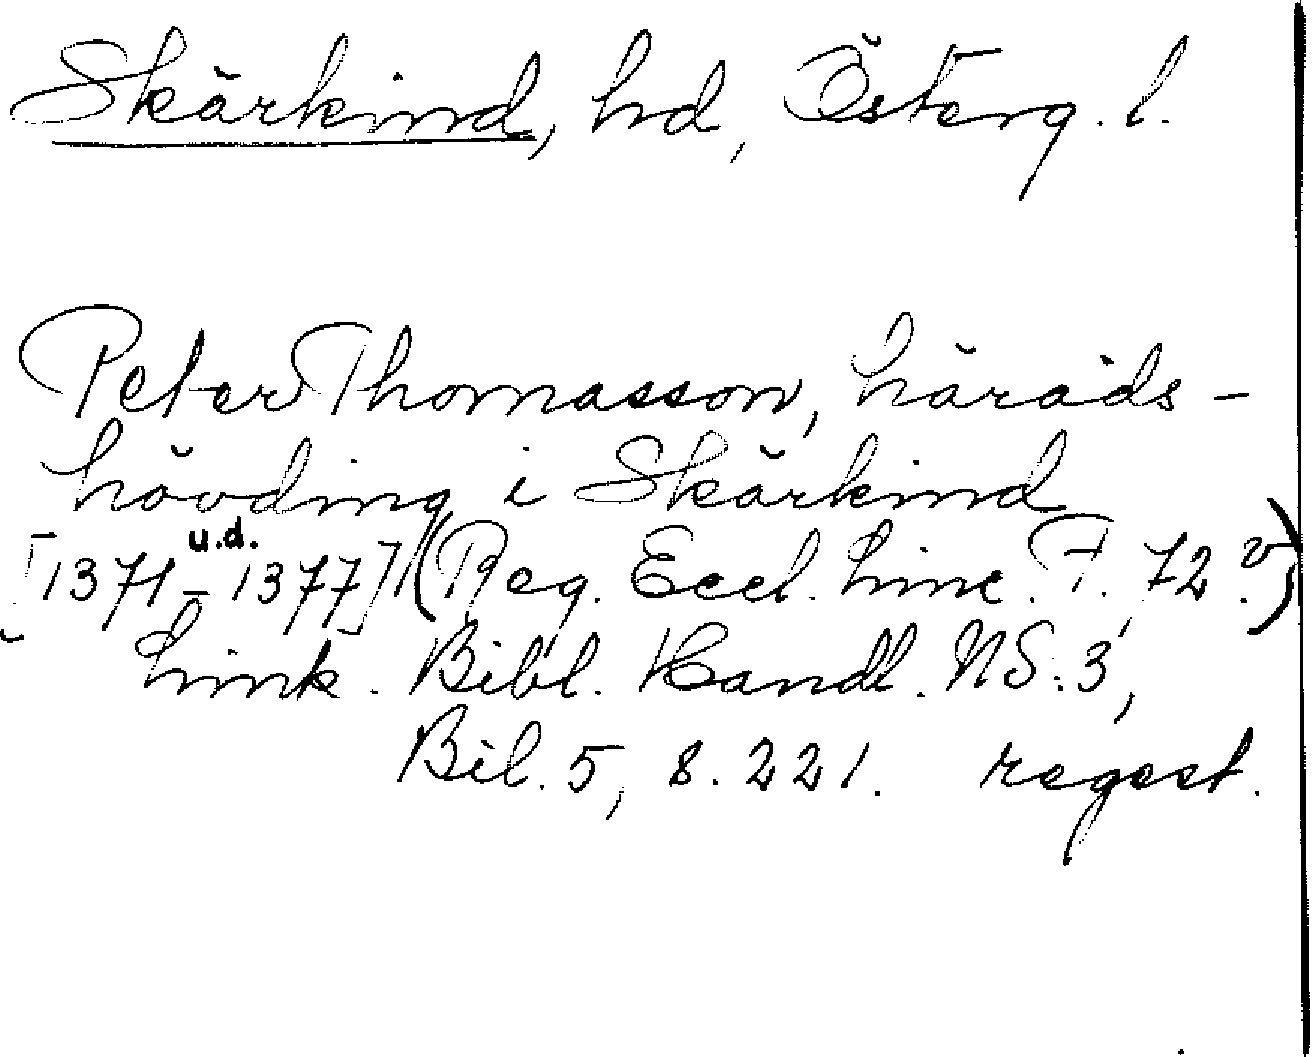 Skärkind, hd, Österg. l.
Peter Thomasson, härads-
hövding i Skärkind
u.d.
[1371-1377] (Reg. Eccl. Linc. F. 72 v.)
Link. Bibl. Handl. NS. 3,
Bil. 5, s. 221. regest.